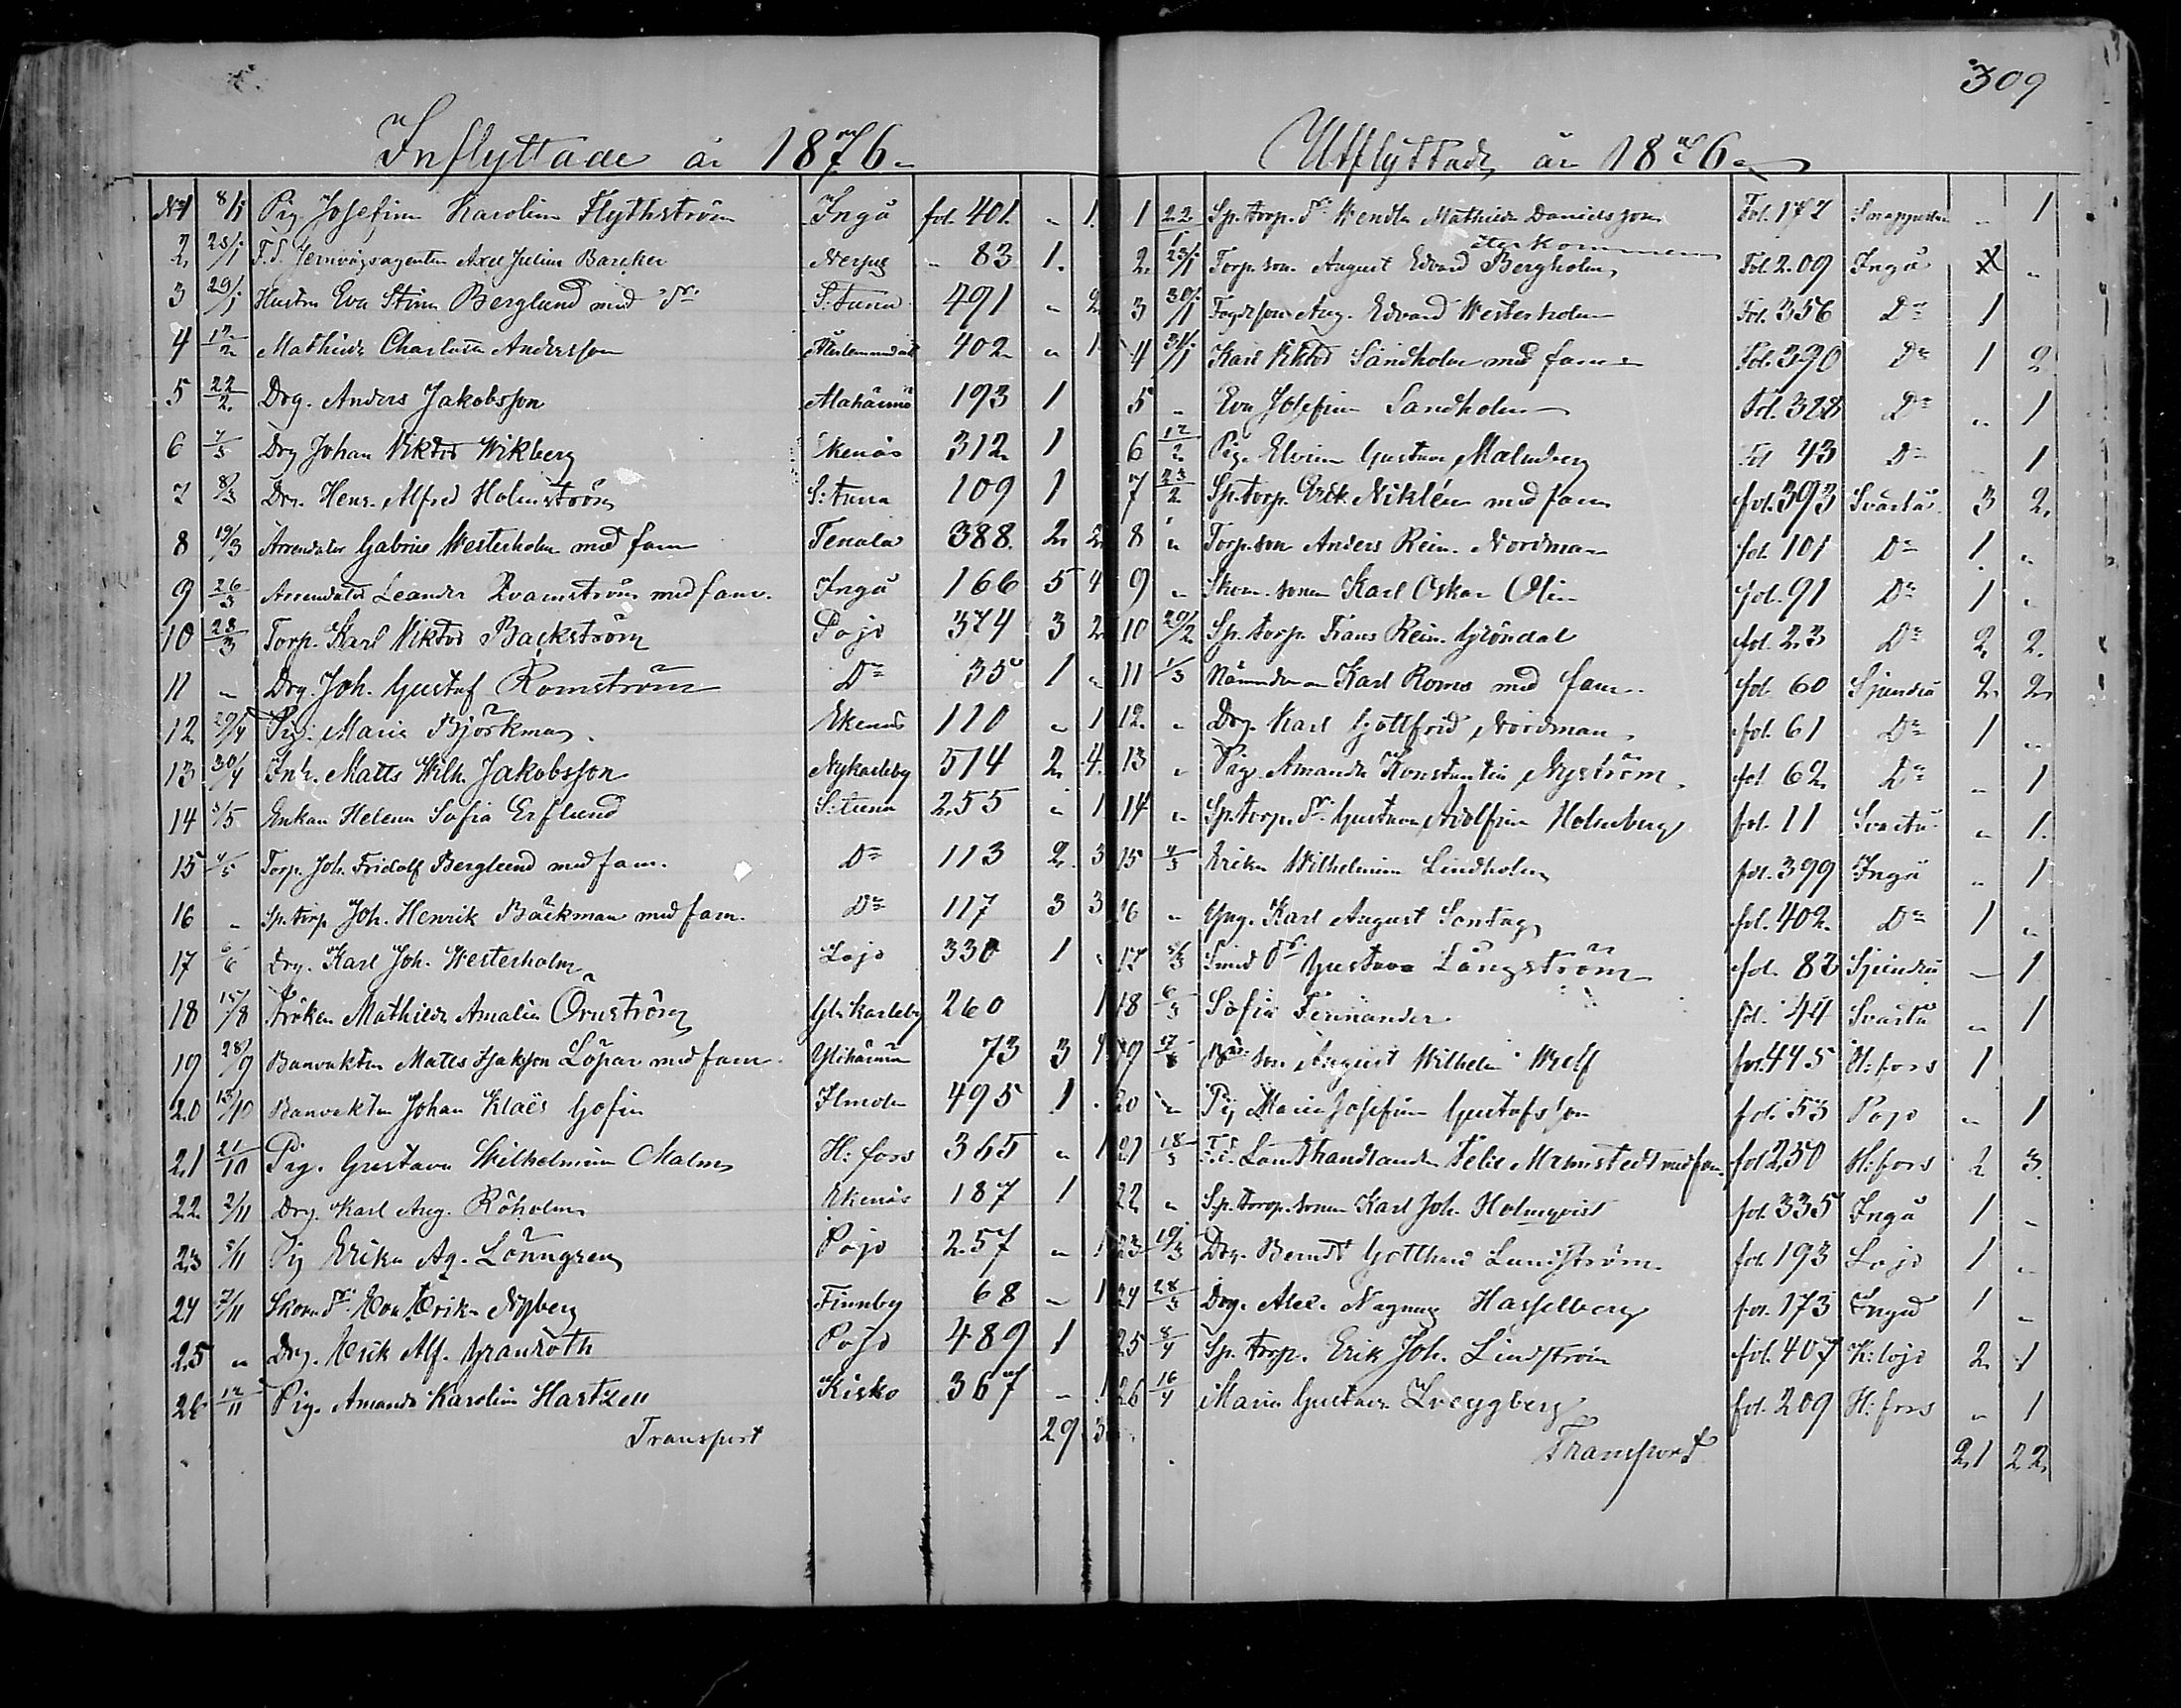 309
Inflyttade år 1876
No 1 8/1 Pig. Josefina Karolina Flythström Ingå fol. 401. " 1.
2. 25/1 F.d. Jernvägsagenten Axel Julius Barcker " 83 1.
3 29/1 Hustru Eva Stina Berglund med dr. S:tuna 491 " 2
4 17/2 Mathilda Charlotta Andersson 402 " 1
5 22/2 Drg. Anders Jakobsson Alahärmä 193 1
6 7/3 Drg Johan Viktor Wikberg Ekenäs 312 1
7 8/3 Drg. Henr. Alfred Holmström S:tuna 109 1
8 19/3 Arrendator Gabriel Westerholm med fam Tenala 388. 2. 2.
9 26/3 Arrendator Leander Qvarnström med fam. Ingå 166 5 4
10 28/3 Torp. Karl Viktor Backström Pojo 374 3 2.
11 " Drg. Joh. Gustaf Romström Do 35 1 "
12. 29/4 Pig. Maria Björkman. Ekenäs 110 " 1
13 30/4 Inh. Matts Wilh. Jakobsson Nykarleby 514 2. 4.
14 3/5 Enkan Helena Sofia Erslund S:tuna 255 " 1
15 4/5 Torp. Joh. Fridolf Berglund med fam. Do 113 2. 3
16 " Sp. torp. Joh. Henrik Bäckman med fam. Do 117 3 3
17 6/6 Drg. Karl Joh. Westerholm Lojo 330 1 "
18 15/8 Fröken Mathilda Amalia Örnström Gl. Karleby 260 1
19 28/9 Banvakten Matts Isaksson Löpar med fam. Ylihärmä 73 3 4
20 13/10 Banvakten Johan Klaës Gofin 495 1 .
21 21/10 Pig. Gustava Wilhelmina Malm H:fors 365 " 1
22. 2/11 Drg. Karl Aug. Röholm Ekenäs 187 1
23 5/11 Pig Erika Ag. Lönngren Pojo 257 " 1
24 7/11 Skom.dr. Eva Erika Nyberg Finnby 68 " 1
25 " Drg. Erik Alf. Granroth Pojo 489 1
26 12/11 Pig. Amanda Karolina Hartzell Kisko 367 " 1
Transport 29 3
Utflyttade år 1876
1 22/1 Sp. torp. dr. Wendla Mathilda Danielsson Fol. 172 Snappertuna " 1
återkommen
2. 25/1 Torp. son. August Edvard Bergholm, Fol. 209 Ingå X "
3 30/1 Fogdeson Aug. Edvard Westerholm Fol. 356 Do 1
4 31/1 Karl Viktor Sandholm med fam Fol. 390 Do 1 2
5 " Eva Josefina Sandholm Fol. 388 Do " 1
6 12/2 Pig. Elvina Gustava Malmberg Fol 43 Do " 1
7 23/2 Sp. torp. Erik Niklén med fam fol. 393 Svartå 3 2.
8 " Torp. son Anders Rein. Nordman fol. 101 Do 1 "
9 " Skom. sonen Karl Oskar Olin fol. 91 Do 1 "
10 29/2 Sp. torp. Frans Rein. Gröndal fol. 23 Do 2. 2.
11 1/3 Nämndeman Karl Roms med fam. fol. 60 Sjundeå 2. 2.
12. " Drg. Karl Gottfrid Nordman. fol. 61 Do 1 "
13 " Pig. Amanda Konstantia Nyström. fol 62. Do " 1
14 " Sp. torp. dr. Gustava Adolfina Holmberg fol. 11 Svartå " 1.
15 4/3 Erika Wilhelmina Lindholm fol. 399 Ingå " 1
16 " Yng. Karl August Sontag fol. 402. Do 1 "
17 5/3 Smed dr. Gustava Långström fol. 82 Sjundeå — 1
18 6/3 Sofia Fernander fol. 44 Svartå " 1
19 17/3 son August Wilhelm Wulf fol. 445 H:fors 1
20 " Pig Maria Josefina Gustafsson fol. 53 Pojo " 1
21 18/3 F.d. Landthandlanden Felix Malmstedt med fam. fol 250 H:fors 2 3.
22 " Sp. torp. sonen Karl Joh. Holmqvist fol. 335 Ingå 1 "
23 19/3 Drg. Berndt Gotthard Lundström fol. 193 Lojo 1 "
24 28/3 Drg. Alex. Magnus Hasselberg fol. 173 Ingå 1 "
25 8/4 Sp. torp. Erik Joh. Lindström fol. 407 K:lojo 2. 1
26 16/4 Maria Gustava Zveygberg fol. 209 H:fors " 1
Transport 21 22.